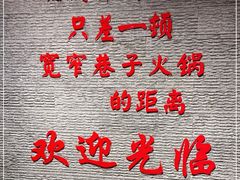 只差一顿
宽窄巷子火锅
的距离
欢迎光临